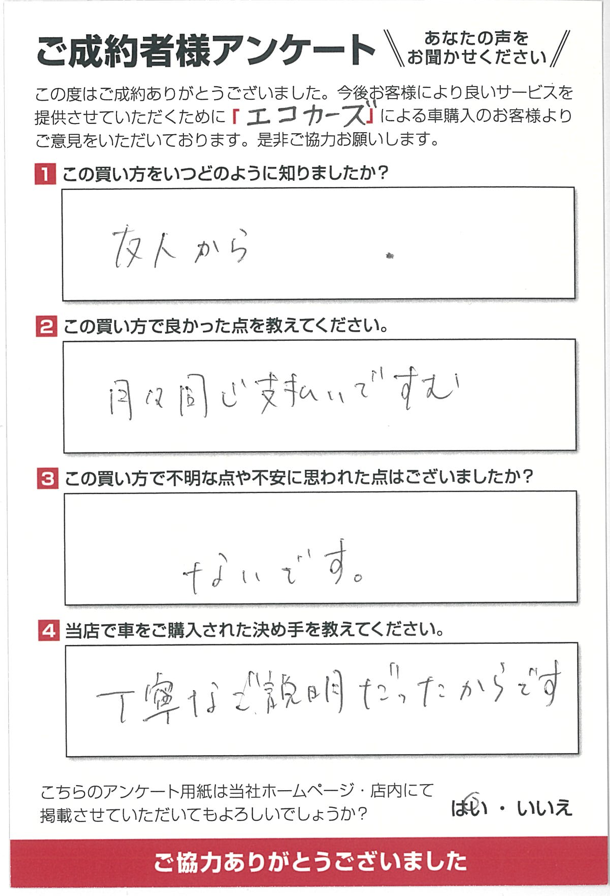 ご成約者様アンケート
あなたの声を
お聞かせください
この度はご成約ありがとうございました。今後お客様により良いサービスを
提供させていただくために『エコカーズ』による車購入のお客様より
ご意見をいただいております。是非ご協力お願いします。
1 この買い方をいつどのように知りましたか?
友人から
2 この買い方で良かった点を教えてください。
支払いですむ
3 この買い方で不明な点や不安に思われた点はございましたか?
ないです。
4 当店で車をご購入された決め手を教えてください。
丁寧なご説明だったからです
こちらのアンケート用紙は当社ホームページ・店内にて
掲載させていただいてもよろしいでしょうか?
はい・いいえ
ご協力ありがとうございました